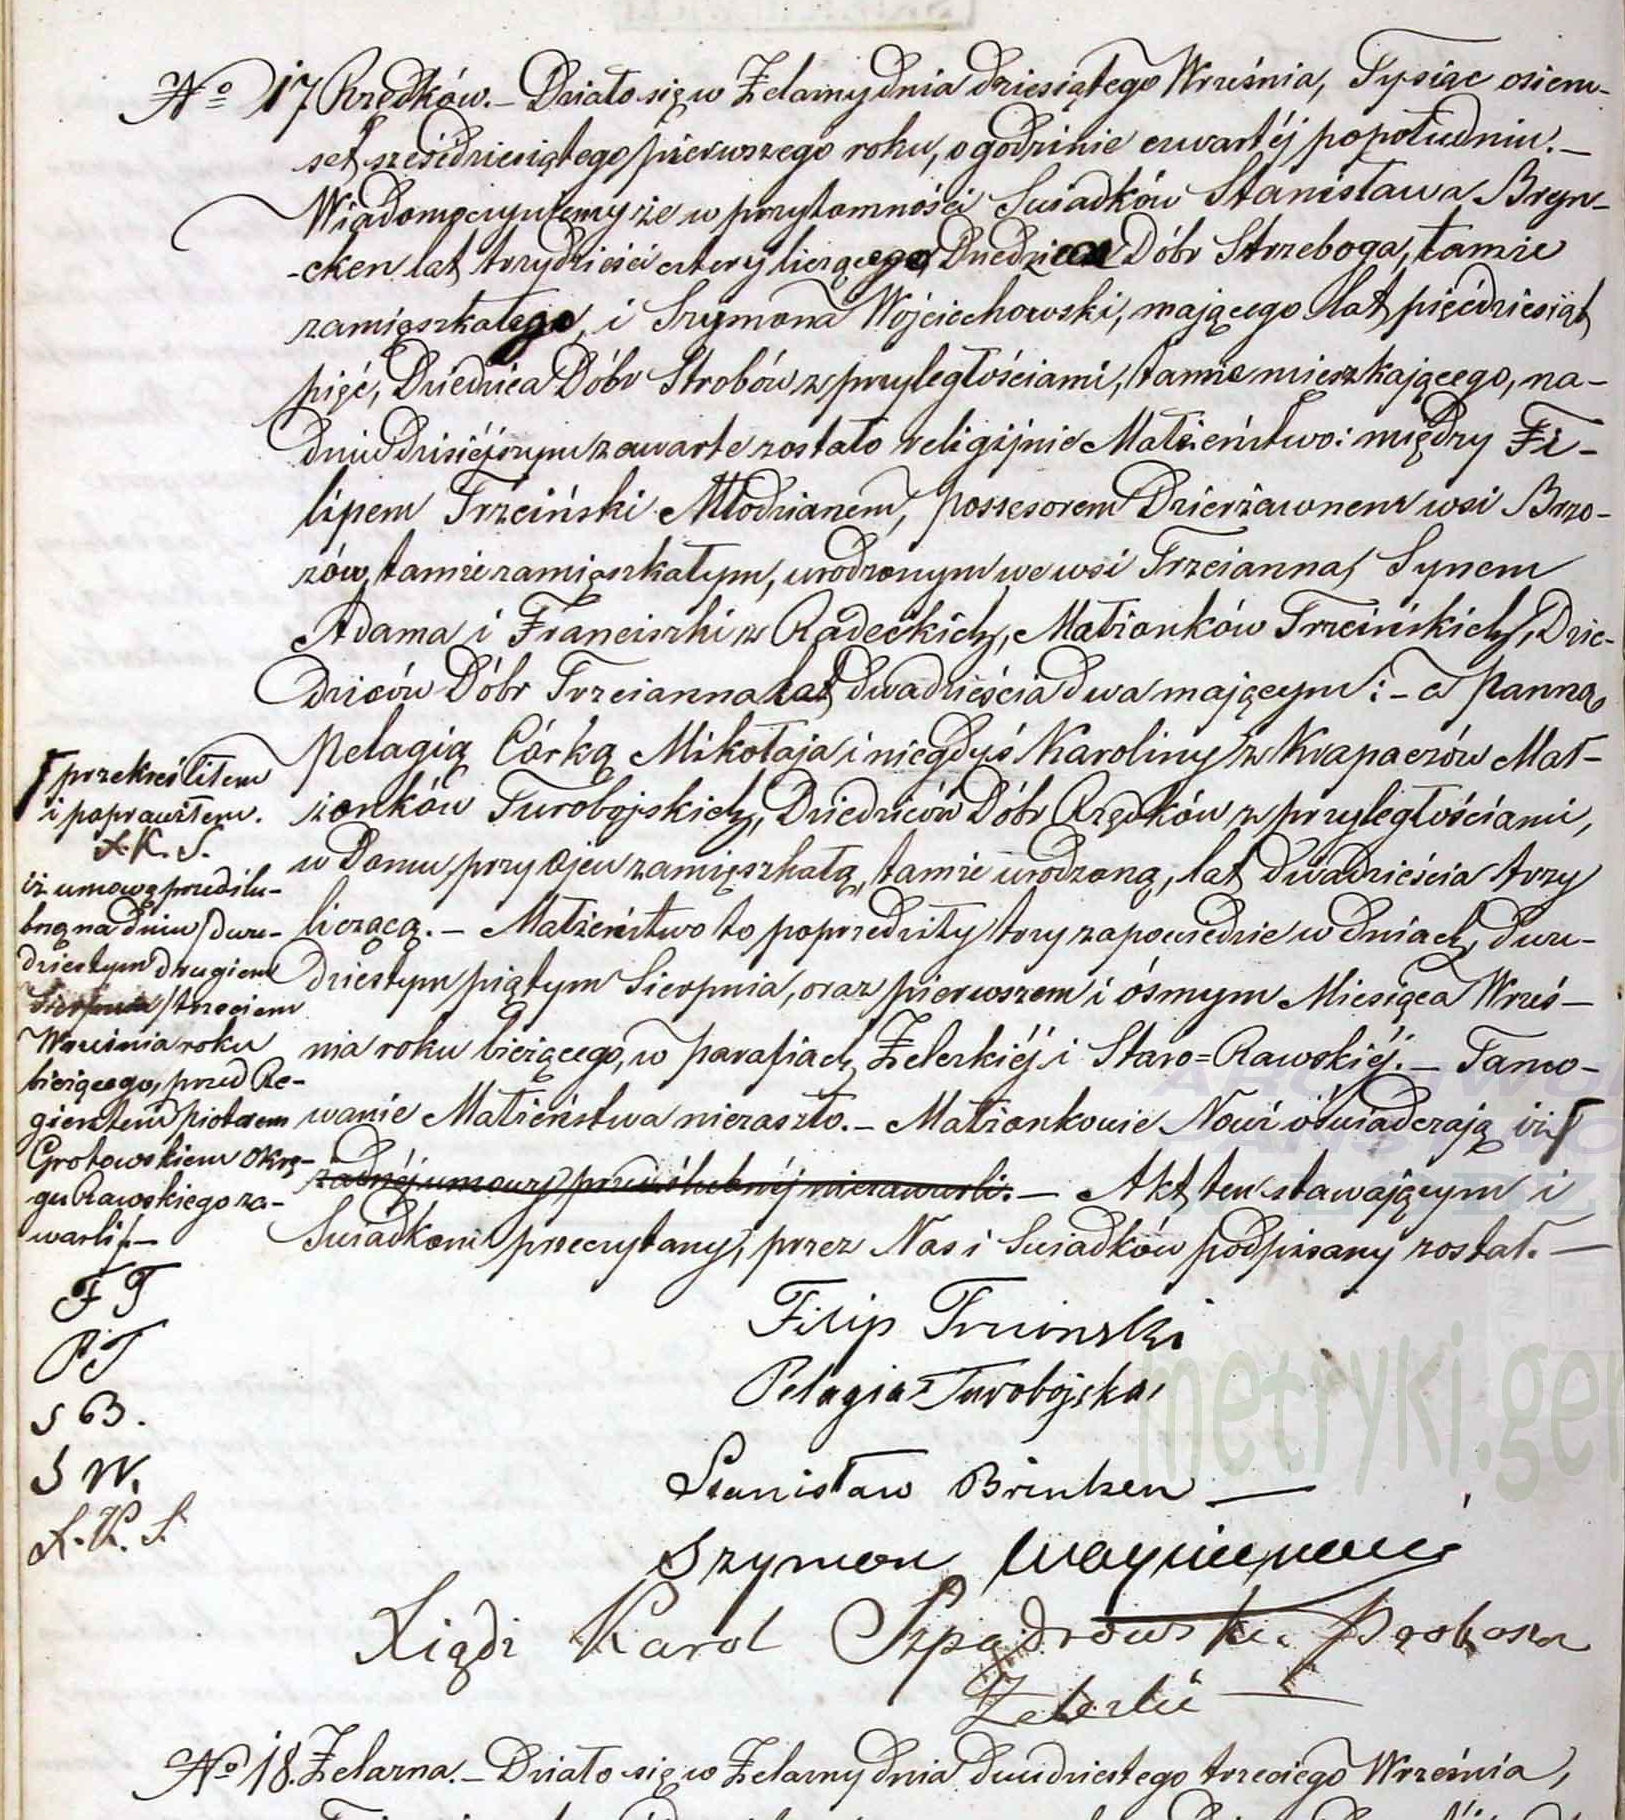 No 17 Rzędków. – Działo się w Żelazny dnia dziesiątego Września, Tysiąc osiem-
set sześćdziesiątego pierwszego roku, o godzinie czwartéj popołudniu. –
Wiadomo czyniemy, że w przytomności Swiadków Stanisława Bryn-
-cken lat trzydzieści cztery liczącego, Dziedzica Dóbr Strzeboga, tamże
zamięszkałego, i Szymona Wójciechowski, mającego lat pięćdziesiąt
pięć, Dziedzica Dóbr Strobów z przyległościami, tamże mieszkającego, na-
dniu dzisiéjszym zawarte zostało religijnie Małżeństwo: między Fi-
lipem Trzciński Młodzianem, possesorem Dzierżawnem wsi Brzo-
zów, tamże zamięszkałym, urodzonym we wsi Trzcianna, Synem
Adama i Franciszki z Radeckich, Małżonków Trzcińskich, Dzie-
dziców Dóbr Trzcianna lat dwadzieścia dwa mającym: – a Panną
Pelagią Córką Mikołaja i niegdyś Karoliny z Krapaczów Mał-
żonków Turobojskich, Dziedziców Dóbr Rzędków z przyległościami,
w Domu przy Ojcu zamięszkałą, tamże urodzoną, lat dwadzieścia trzy
liczącą. – Małżeństwo to poprzedziły trzy zapowiedzie w dniach, dwu-
dziestym piątym Sierpnia, oraz pierwszem i ósmym Miesiąca Wrześ-
nia roku bieżącego, w parafiach Żeleskiéj i Staro=Rawskiéj. – Tamo-
wanie Małżeństwa niezaszło. – Małżonkowie Nowi oświadczają iż
żadnéj umowy przedślubnéj niezawarli. – Akt ten stawającym i
Swiadkom przeczytany, przez Nas i Swiadków podpisany został. –
przekreśliłem
i poprawiłem.
X. K. S.
iż umowę przedślu-
bną na dniu dwu-
dziestym drugiem
Sierpnia / trzeciem
Września roku
bieżącego, przed Re-
gientem Piotrem
Grotowskiem Okrę-
gu Rawskiego za-
warli. –
F T
P T
S B.
S W.
X. K. S
Filip Trzcinski
Pelagia Turobojska
Stanisław Brinken
Szymon
Xiądz Karol Proboszcz
No 18. Żelazna. – Działo się w Żelazny dnia dwudziestego trzeciego Września,
metryki.gen